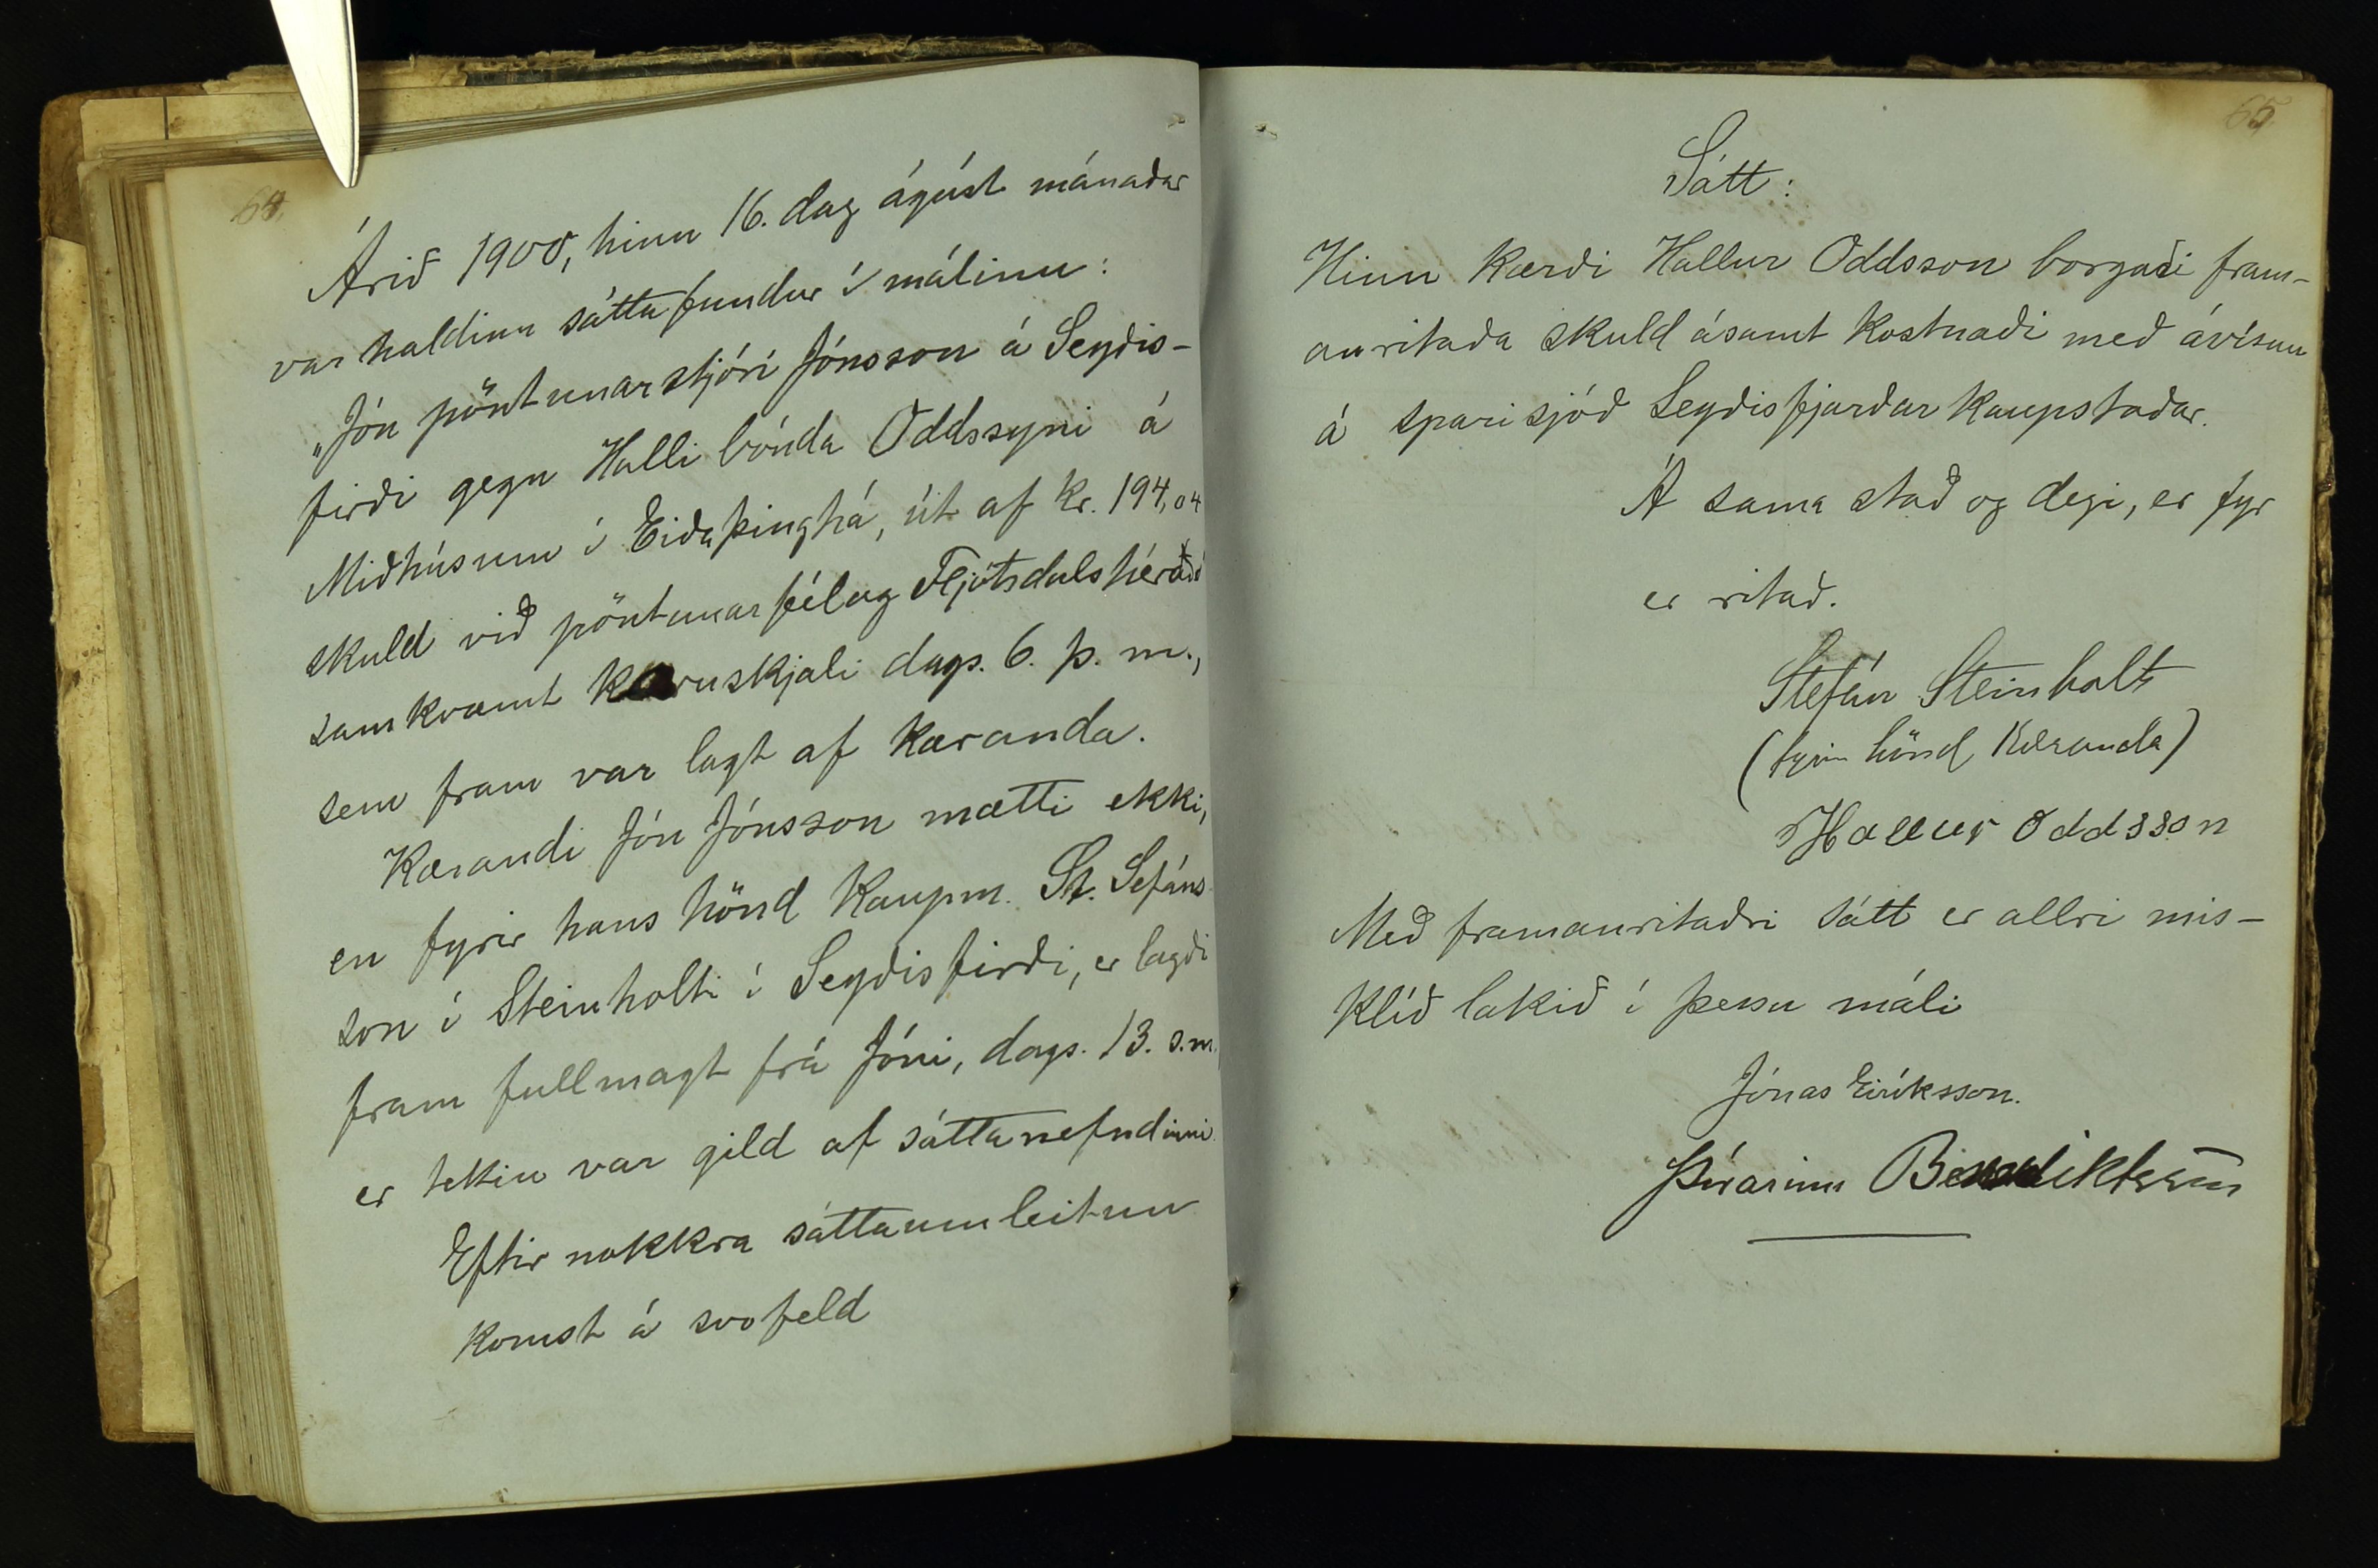 64.
Árið 1900, hinn 16. dag ágúst mánaðar
var haldinn sáttafundur í málinu:
„Jón pöntunarstjóri Jónsson á Seyðis-
firði gegn Halli bónda Oddssyni á
Miðhúsum í Eiðaþinghá, út af kr. 194,04
skuld við pöntunarfélag Fljótsdalshéraðs
samkvæmt kæruskjali dags. 6. þ. m.,
sem fram var lagt af kæranda.
Kærandi Jón Jónsson mætti ekki,
en fyrir hans hönd kaupm. St. Sefáns
son í Steinholti í Seyðisfirði, er lagði
fram fullmagt frá Jóni, dags. 13. s.m.
er tekin var gild af sáttanefndinni.
Eftir nokkra sáttaumleitun
komst á svofeld
65
Sátt:
Hinn kærði Hallur Oddsson borgaði fram-
anritaða skuld ásamt kostnaði með ávísun
á sparisjóð Seyðisfjarðar kaupstaðar.
Á sama stað og degi, er fyr
er ritað.
Stefán Steinholt
(fyrir hönd kæranda)
Hallur Oddsson
Með framanritaðri sátt er allri mis-
klíð lokið í þessu máli
Jónas Eiríksson.
Þórarinn Benediktsson